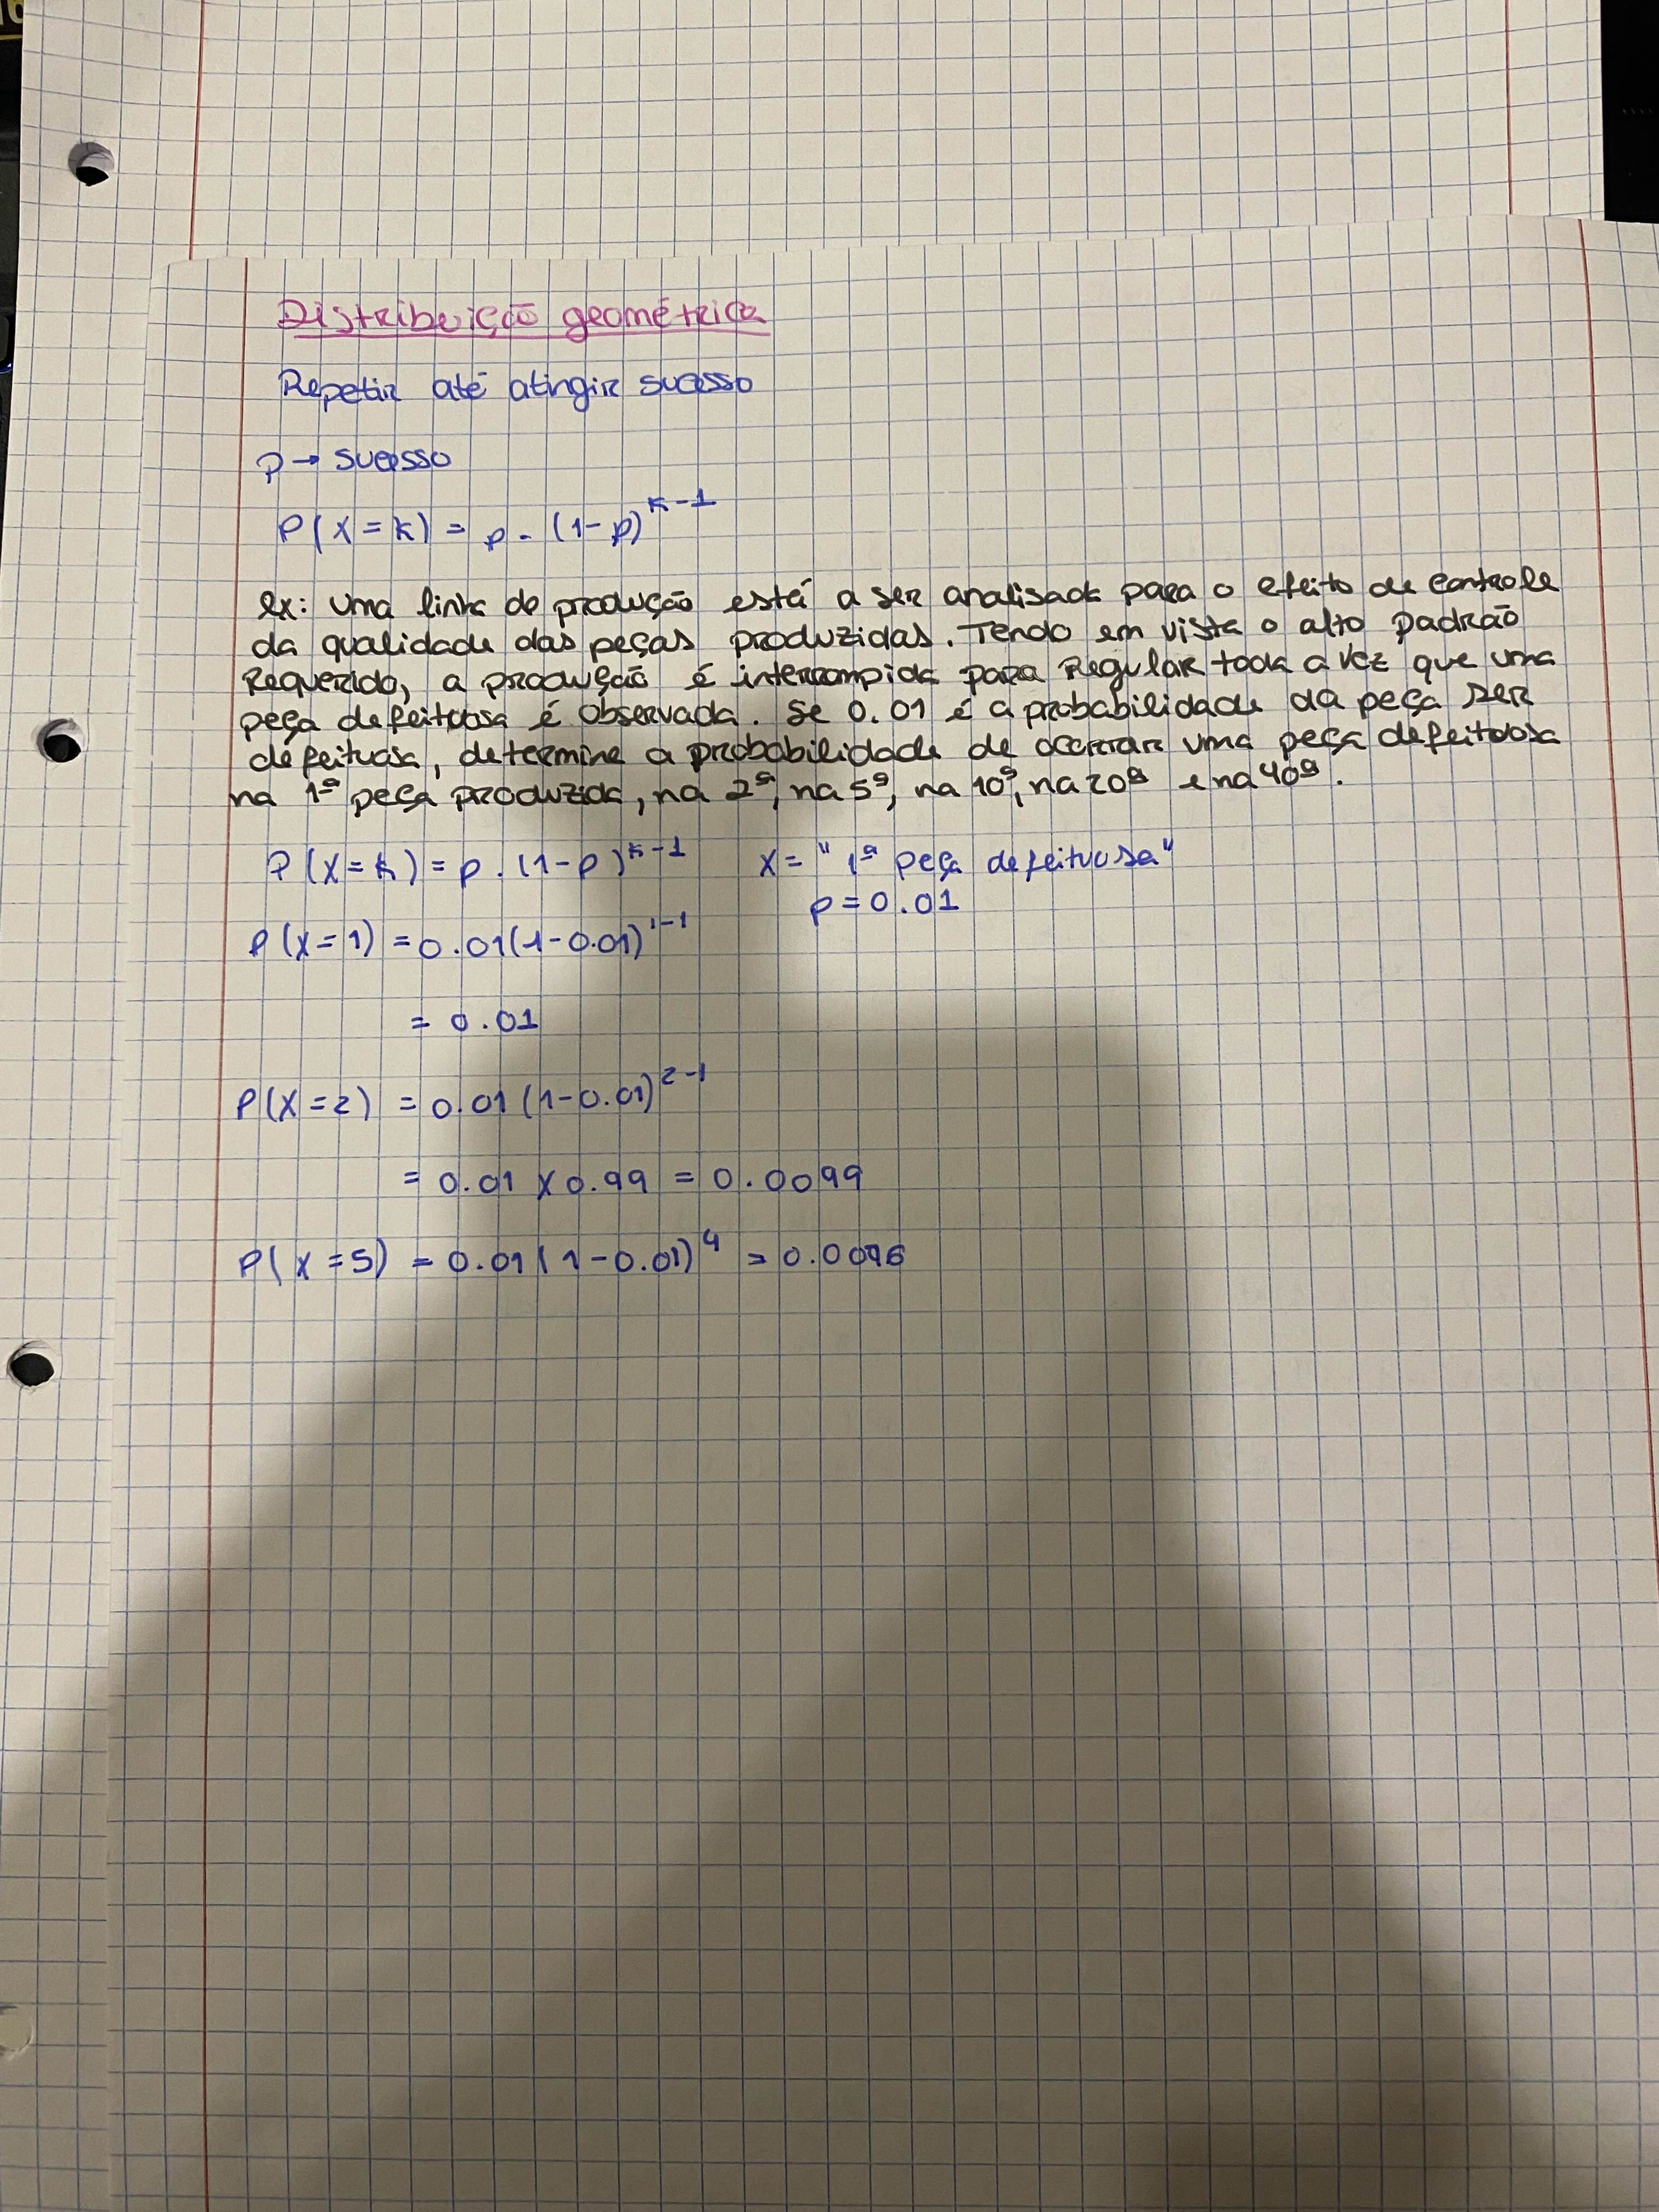 Distribuição geométrica
Repetir até atingir sucesso
p → sucesso
P(X=k) = p . (1-p)^k-1
ex: uma linha de produção está a ser analisada para o efeito de controle
da qualidade das peças produzidas. Tendo em vista o alto padrão
Requerido, a produção é interrompida para Regular toda a vez que uma
peça defeituosa é observada. Se 0.01 é a probabilidade da peça ser
defeituosa, determine a probabilidade de ocorrer uma peça defeituosa
na 1ª peça produzida, na 2ª, na 5ª, na 10ª, na 20ª e na 40ª.
P(X=k) = p . (1-p)^k-1 X = "1ª peça defeituosa"
p = 0.01
P(X=1) = 0.01(1-0.01)^1-1
= 0.01
P(X=2) = 0.01(1-0.01)^2-1
= 0.01 x 0.99 = 0.0099
P(X=5) = 0.01(1-0.01)^4 = 0.0096